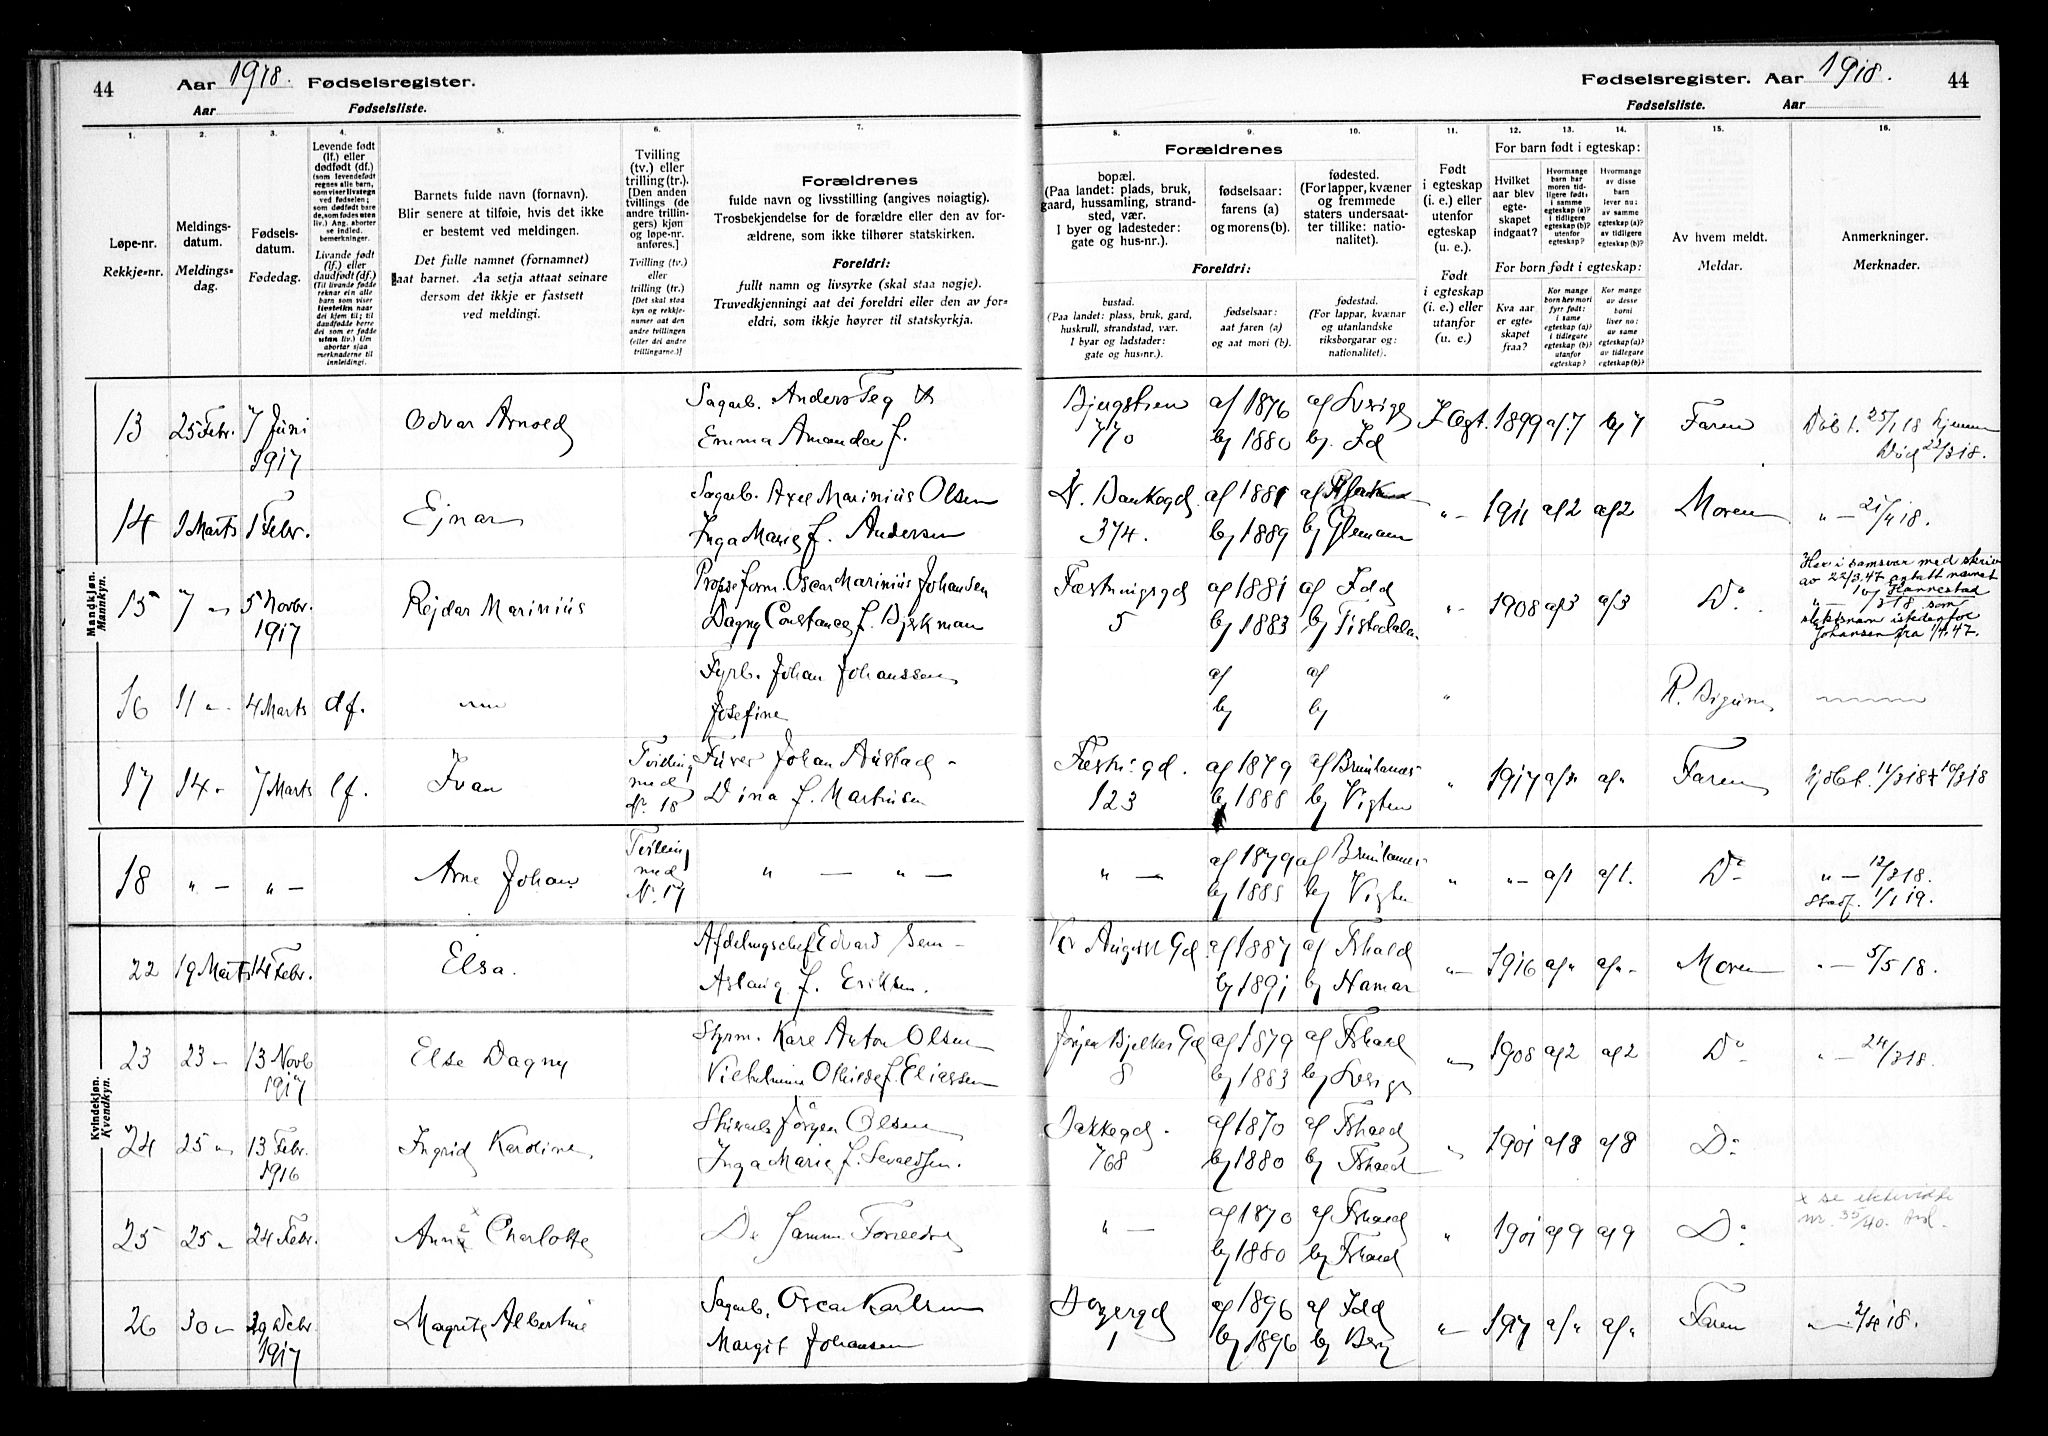 44 Aar 1918. Fødselsregister.
Aar Fødselsliste.
Fødselsregister. Aar 1918. 44
Fødselsliste. Aar
1. 2. 3. 4. 5. 6. 7.
Løpe-nr.
Rekkje-nr.
Meldings-
datum.
Meldings-
dag.
Fødsels-
datum.
Fødedag.
Levende født
(lf.) eller
dødfødt (df.)
(som levendefødt
regnes alle barn,
som viser livstegn
ved fødselen;
som dødfødt bare
de, som fødes uten
liv.) Ang. aborter
se indled.
bemerkninger.
Livande født
(lf.) eller
daudfødt (df.)
(Til livande fødde
reknar ein alle
barn som viser
livsteikn naar
dei kjem til; til
daudfødde berre
dei som er fødde
utan liv.) Um
abortar sjaa
merknaderne til
innleiding).
Barnets fulde navn (fornavn).
Blir senere at tilføie, hvis det ikke
er bestemt ved meldingen.
Det fulle namnet (fornamnet)
aat barnet. Aa setja attaat seinare
dersom det ikkje er fastsett
ved meldingi.
Tvilling
(tv.) eller
trilling (tr.).
[Den anden
tvillings (de
andre trillin-
gers) kjøn
og løpe-nr.
anføres.]
Tvilling (tv.)
eller
trilling (tr.)
[Det skal staa
kyn og rekkje-
numer aat den
andre tvillingen
(eller dei andre
trillingarne.)]
Forældrenes
fulde navn og livsstilling (angives nøiagtig).
Trosbekjendelse for de forældre eller den av for-
ældrene, som ikke tilhører statskirken.
Foreldri:
fullt namn og livsyrke (skal staa nøgje).
Truvedkjenningi aat dei foreldri eller den av for-
eldri, som ikkje høyrer til statskyrkja.
8. 9. 10. 11. 12. 13. 14. 15. 16.
Forældrenes
bopæl.
(Paa landet: plads, bruk,
gaard, hussamling, strand-
sted, vær.
I byer og ladesteder:
gate og hus-nr.).
fødselsaar:
farens (a)
og morens (b).
fødested.
(For lapper, kvæner
og fremmede
staters undersaat-
ter tillike: natio-
nalitet).
Foreldri:
bustad.
(Paa landet: plass, bruk, gard,
huskrull, strandstad, vær.
I byar og ladstader:
gate og hus-nr.).
fødselsaar:
aat faren (a)
og aat mori (b).
fødestad.
(For lappar, kvænar
og utanlandske
riksborgarar og:
nationalitet).
Født
i egteskap
(i. e.) eller
utenfor
egteskap
(u. e.).
Født
i egteskap
(i. e.) eller
utanfor
(u. e.)
For barn født i egteskap:
Hvilket
aar blev
egte-
skapet
indgaat?
Hvormange
barn har
moren tid-
ligere født:
i samme
egteskap (a)?
i tidligere
egteskap (b)?
utenfor
egteskap?
Hvormange
av disse
barn
lever nu:
av samme
egteskap (a)?
av tidligere
egteskap (b)?
For born født i egteskap:
Kva aar
er egte-
skapet
fraa?
Kor mange
born hev mori
fyrr født:
i same
egteskap (a)?
i tidlegare
egteskap (b)?
utanfor
egteskap?
Kor mange
av desse
borni
liver no:
av same
egteskap (a)?
av tidlegare
egteskap (b)?
Av hvem meldt.
Meldar.
Anmerkninger.
Merknader.
Mandkjøn.
Mannkyn.
13 25 Febr. 7 Juni 1917 Odvar Arnold
Sagarb. Anders Teg
Emma Amanda f.
770
a/ 1876
b/ 1880
a/ Sverige
b/ Id
I Egt. 1899 a/7 Faren
Døbt. 25/1 18 hjemme
Død 22/3 18.
14 1 Marts 1 Febr. Ejnar
Sagarb. Axel Marinius Olsen
Inga Marie f. Andersen
N. Bankegd.
374.
a/ 1881
b/ 1889
b/ Glemmen
" - 1911 a/2 a/2 Moren
" - 21/4 18.
15 7 - 5 Novbr. 1917 Rejdar Marinius
Oscar Marinius Johansen
Dagny Constance f. Bjerkman
Fæstningsgd
5
a/ 1881
b/ 1883
a/ Idd
b/ Tistedalen
" - 1908 a/3 a/3 Do
Her i samsvar med skriv
av 22/3.47
Hannestad
/3 18 som
slektsnavn istedenfor
Johansen fra 1/4.47.
16 11 - 4 Marts df.
Fyrb. Johan Johanssen
Josefine
a/
b/
a/
b/
"
17 14 - 7 Marts lf. Ivan
Tvilling
med
Nr. 18
Johan Austad -
Dina f. Martinsen
Fæstn. gd.
123
a/ 1879
b/ 1888
a/ Brunlanes
b/ Vigten
" 1917 a/" a/" Faren
Hjdbt. 11/3 18 † 16/3 18
18 " - " - Arne Johan
Tvilling
med
Nr. 17
" - " -
" -
a/ 1879
b/ 1888
a/ Brunlanes
b/ Vigten
" " - a/1 a/1. Do
" - 12/3 18.
1/1 19.
22 19 Marts 14 Febr. Elsa.
Afdelingschef Edvard Sem -
Aslaug f. Eriksen.
August Gd.
a/ 1887
b/ 1891
a/ Fshald
b/ Hamar
" - 1916 a/" a/" - Moren
" - 5/5 18.
Kvindekjøn.
Kvendkyn.
23 23 - 13 Novb 1917 Else Dagny
Styrm. Karl Anton Olsen
Vilhelmine Othilde f. Eliassen
Jørgen Bjelkes Gd
8
a/ 1879
b/ 1883
a/ Fshald
b/ Sverige
" 1908 a/2 a/2 Do
" - 24/3 18.
24 25 - 13 Febr. 1916 Ingrid Karoline
Jørgen Olsen
Inga Marie f. Sevaldsen.
Bakkegd.
768
a/ 1870
b/ 1880
a/ Fshald
b/ Fshald
" 1901 a/8 a/8 Do
25 25 - 24 Febr. Anne Charlotte
De samme Forældre
" -
a/ 1870
b/ 1880
a/ Fshald
b/ Fshald
" 1901 a/9 a/9 Do
x se
nr. 35/40.
26 30 - 29 Debr 1917 Magrete Albertine
Sagarb. Oscar Karlsen
Margit Johansen
1
a/ 1896
b/ 1896
a/ Idd
b/ Berg
" - 1917 a/" a/" Faren
" - 2/4 18.